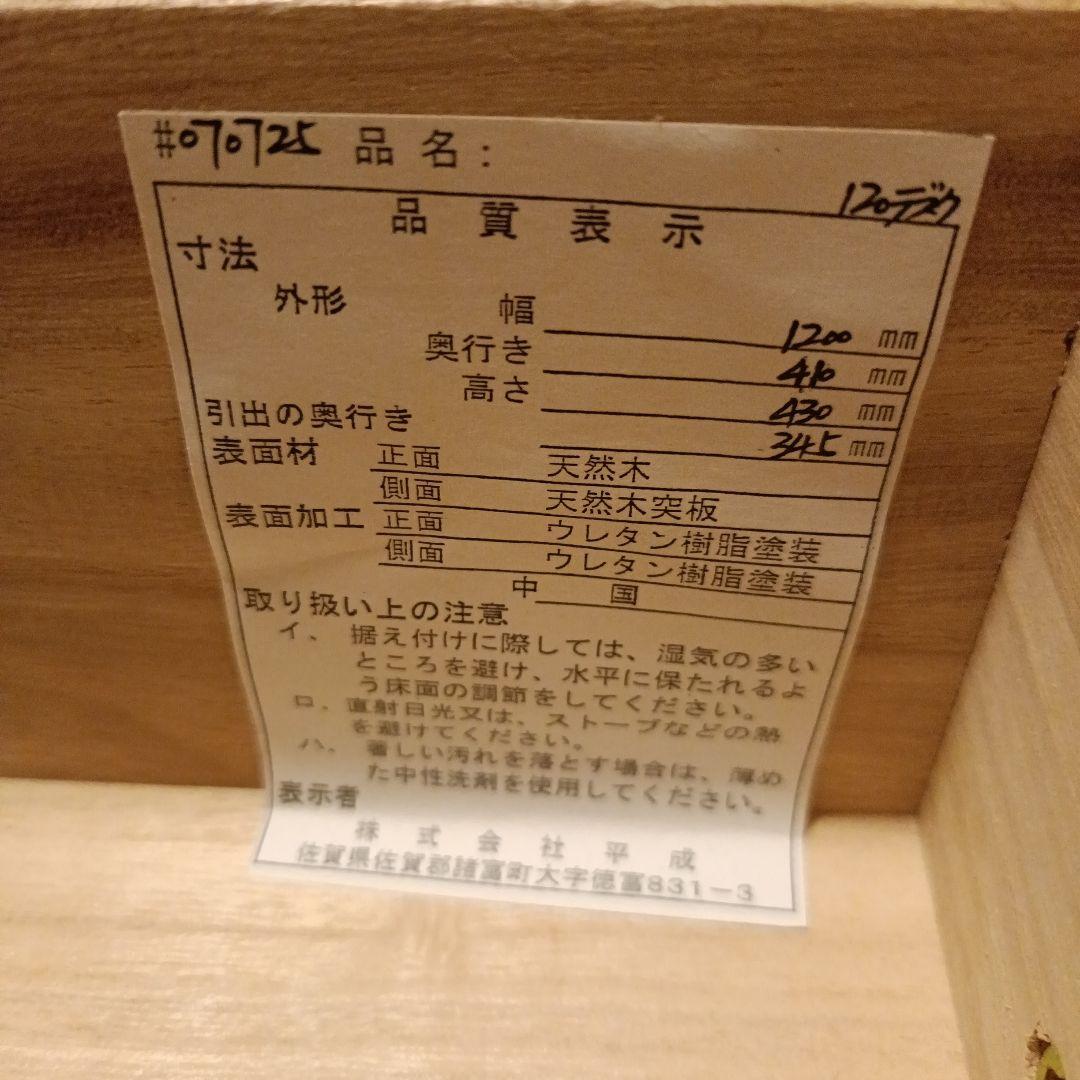 #070725 品名:
120デスク
品質表示
寸法
外形 幅 1200 mm
奥行き 410 mm
高さ 430 mm
引出の奥行き 345 mm
表面材 正面 天然木
側面 天然木突板
表面加工 正面 ウレタン樹脂塗装
側面 ウレタン樹脂塗装
中国
取り扱い上の注意
イ、据え付けに際しては、湿気の多い
ところを避け、水平に保たれるよ
う床面の調節をしてください。
ロ、直射日光又は、ストーブなどの熱
を避けてください。
ハ、著しい汚れを落とす場合は、薄め
た中性洗剤を使用してください。
表示者
株式会社平成
佐賀県佐賀郡諸富町大字徳富831-3